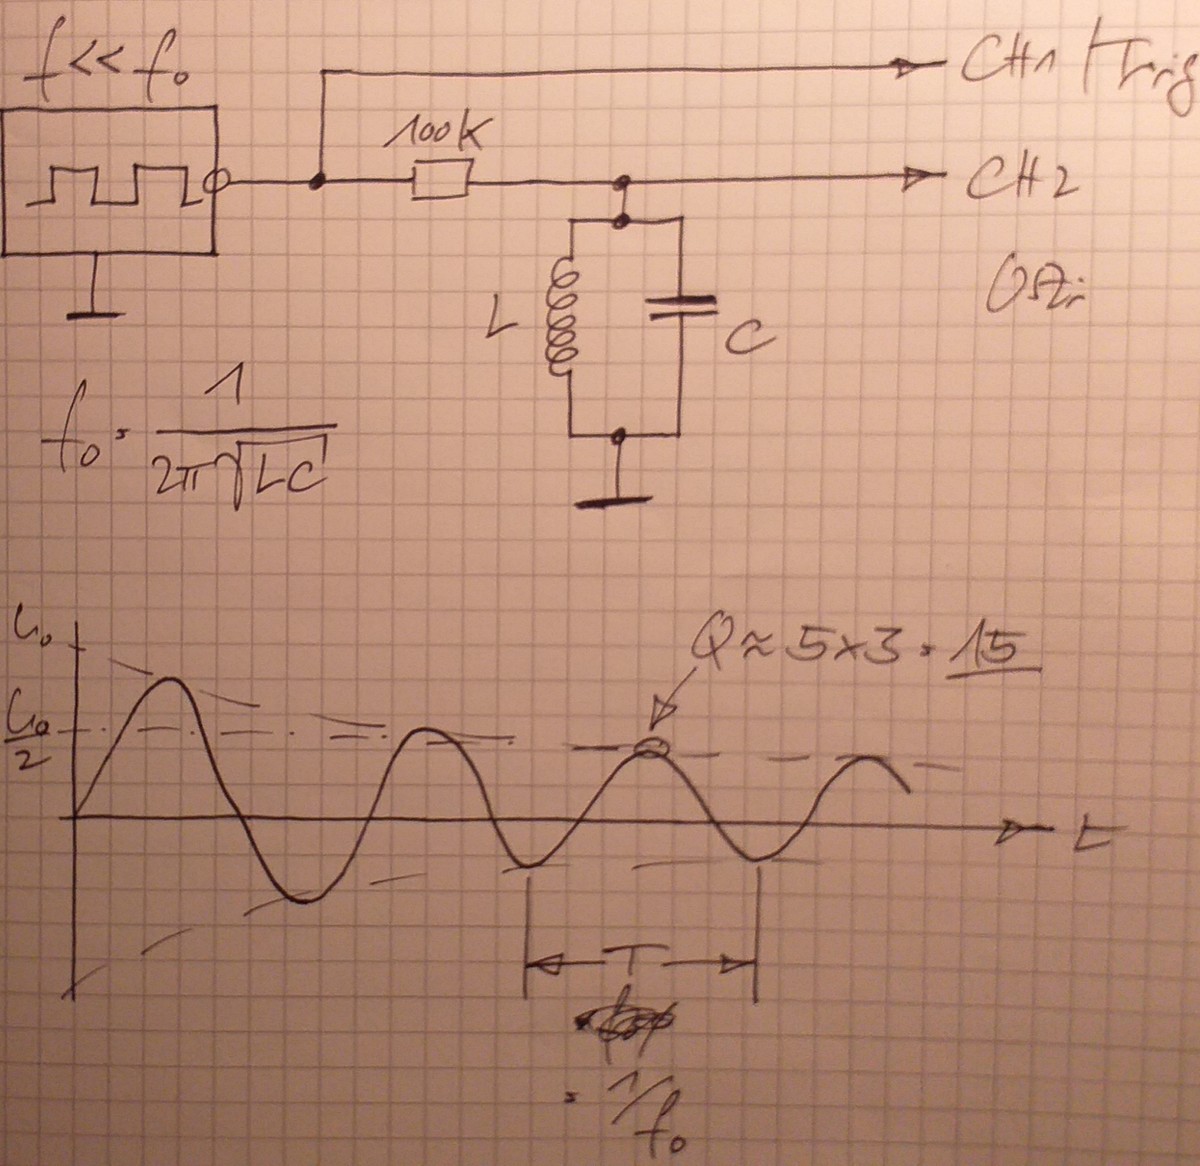 f << f₀
CH1 / Trig
100K
CH2
Oszi
L
C
f₀ = 1 / 2π√LC
U₀
U₀/2
Q ≈ 5 x 3 = 15
t
T
= 1/f₀